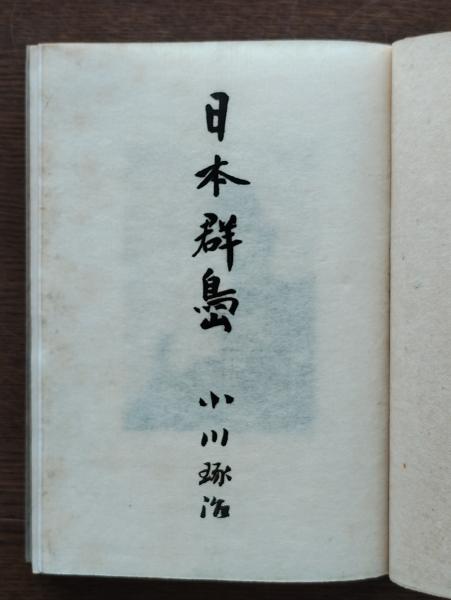 日本群島
小川琢治